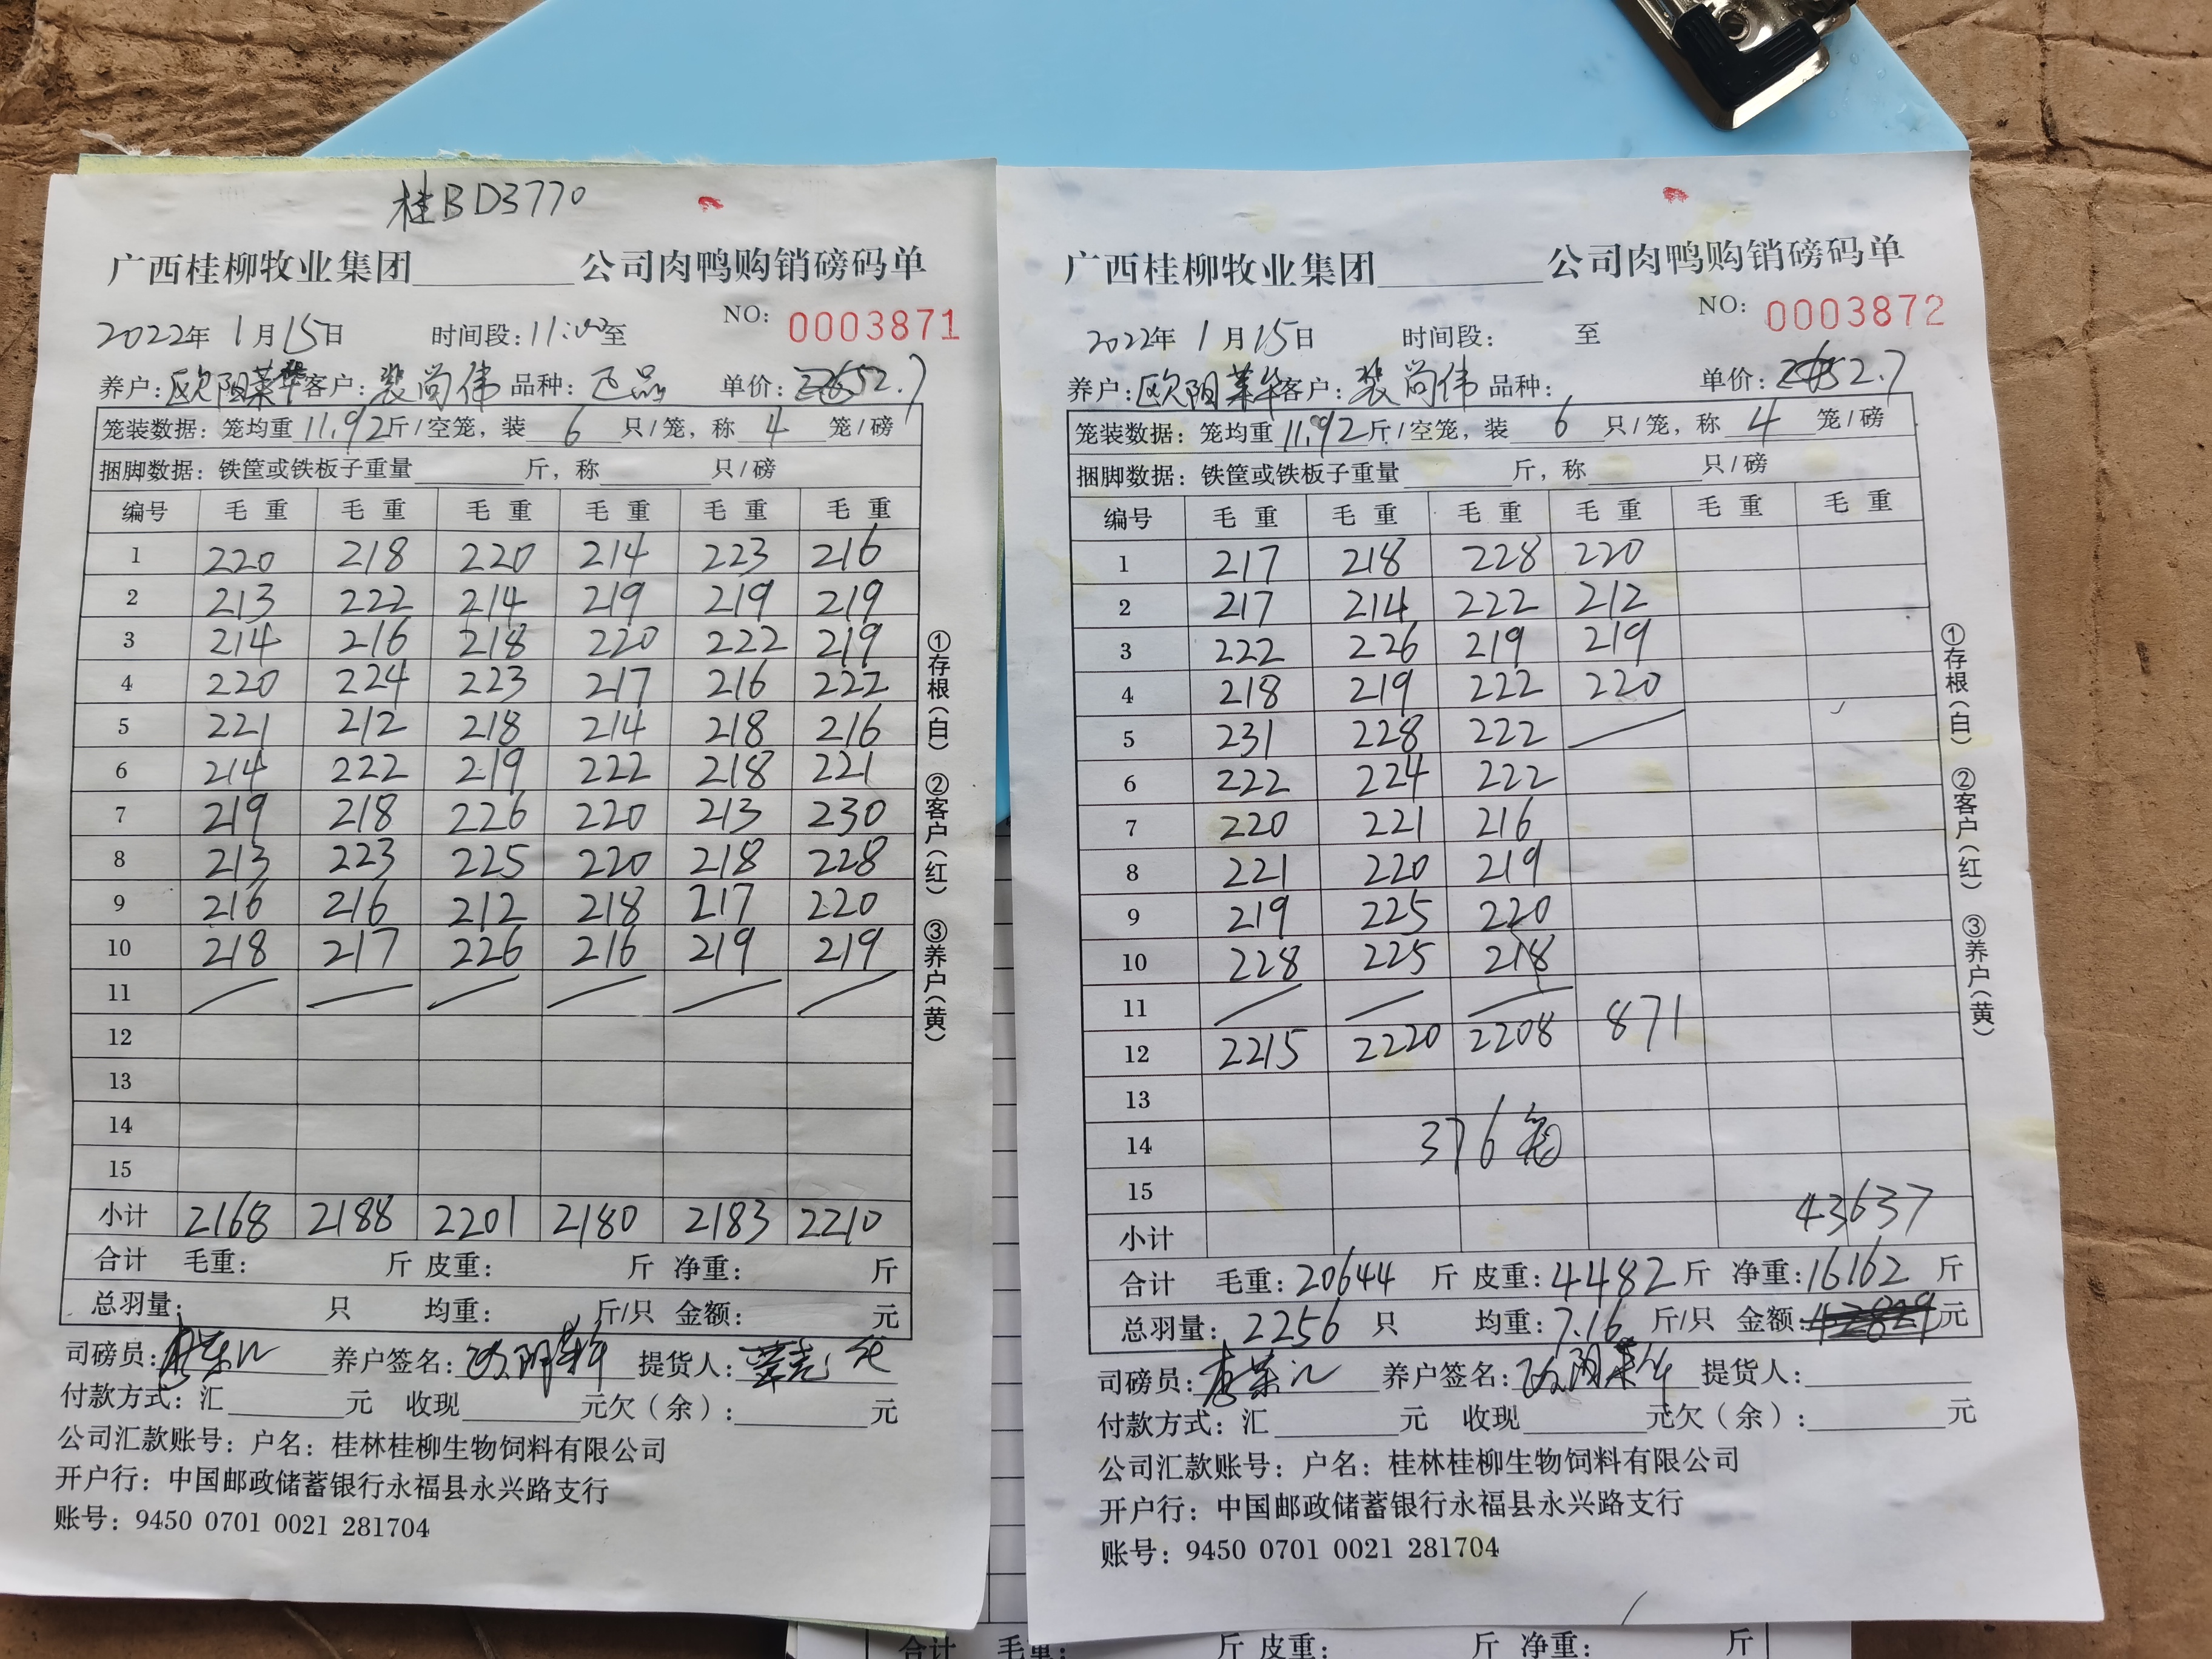 桂BD3770
广西桂柳牧业集团________公司肉鸭购销磅码单
NO: 0003871
2022年 1月15日 时间段: 11:00至
养户: 欧阳莱华 客户: 裴尚伟 品种: 正品 单价: 2.7
笼装数据: 笼均重 11.92斤/空笼, 装 6 只/笼, 称 4 笼/磅
捆脚数据: 铁筐或铁板子重量______斤, 称______只/磅
编号 毛重 毛重 毛重 毛重 毛重 毛重
1 220 218 220 214 223 216
2 213 222 214 219 219 219
3 214 216 218 220 222 219
4 220 224 223 217 216 222
5 221 212 218 214 218 216
6 214 222 219 222 218 221
7 219 218 226 220 213 230
8 213 223 225 220 218 228
9 216 216 212 218 217 220
10 218 217 226 216 219 219
11
12
13
14
15
小计 2168 2188 2201 2180 2183 2210
合计 毛重: 斤 皮重: 斤 净重: 斤
总羽量: 只 均重: 斤/只 金额: 元
司磅员: 养户签名: 欧阳莱华 提货人:
付款方式: 汇______元 收现______元欠(余):______元
公司汇款账号: 户名: 桂林桂柳生物饲料有限公司
开户行: 中国邮政储蓄银行永福县永兴路支行
账号: 9450 0701 0021 281704
①存根(白) ②客户(红) ③养户(黄)
广西桂柳牧业集团________公司肉鸭购销磅码单
NO: 0003872
2022年 1月15日 时间段: 至
养户: 欧阳莱华 客户: 裴尚伟 品种: 单价: 2.7
笼装数据: 笼均重 11.92斤/空笼, 装 6 只/笼, 称 4 笼/磅
捆脚数据: 铁筐或铁板子重量______斤, 称______只/磅
编号 毛重 毛重 毛重 毛重 毛重 毛重
1 217 218 228 220
2 217 214 222 212
3 222 226 219 219
4 218 219 222 220
5 231 228 222
6 222 224 222
7 220 221 216
8 221 220 219
9 219 225 220
10 228 225 218
11
12 2215 2220 2208 871
13
14 376
15
43637
小计
合计 毛重: 20644 斤 皮重: 4482斤 净重: 16162 斤
总羽量: 2256 只 均重: 7.16 斤/只 金额: 元
司磅员: 养户签名: 欧阳莱华 提货人:
付款方式: 汇______元 收现______元欠(余):______元
公司汇款账号: 户名: 桂林桂柳生物饲料有限公司
开户行: 中国邮政储蓄银行永福县永兴路支行
账号: 9450 0701 0021 281704
①存根(白) ②客户(红) ③养户(黄)
合计 毛重: 斤 皮重: 斤 净重: 斤